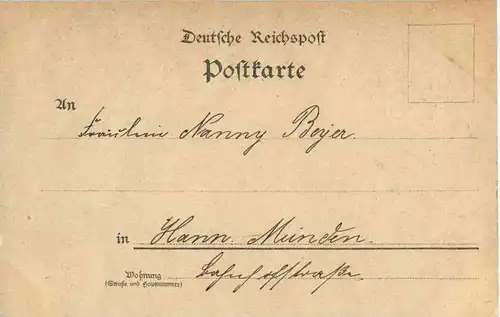 Deutsche Reichspost
Postkarte
An
Fräulein Nanny Beyer.
in Hann. Münden.
Wohnung Bahnhofstraße.
(Straße und Hausnummer)